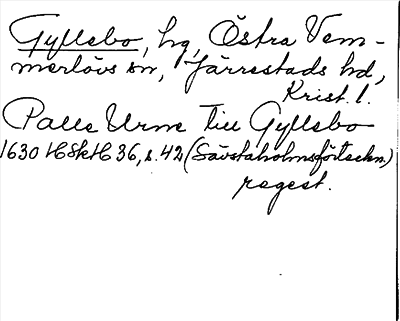 Gyllebo, hg, Östra Vem-
merlövs sn, Järrestads hd,
Krist. l.
Palle Urne till Gyllebo
1630 HSkH 36, s. 42 (Sävstaholmsförteckn.)
regest.